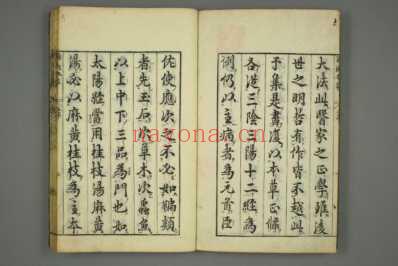 大法此醫家之正學雖後
世之明哲有作皆不越此
予集是書復以本草正條
各從三陰三陽十二經為
例仍以主病者為元首臣
佐使應次之不必如編類
者先玉石次草木次蟲魚
以上中下三品為門也如
太陽經當用桂枝湯麻黃
湯必以麻黃桂枝為主本
nazona.com